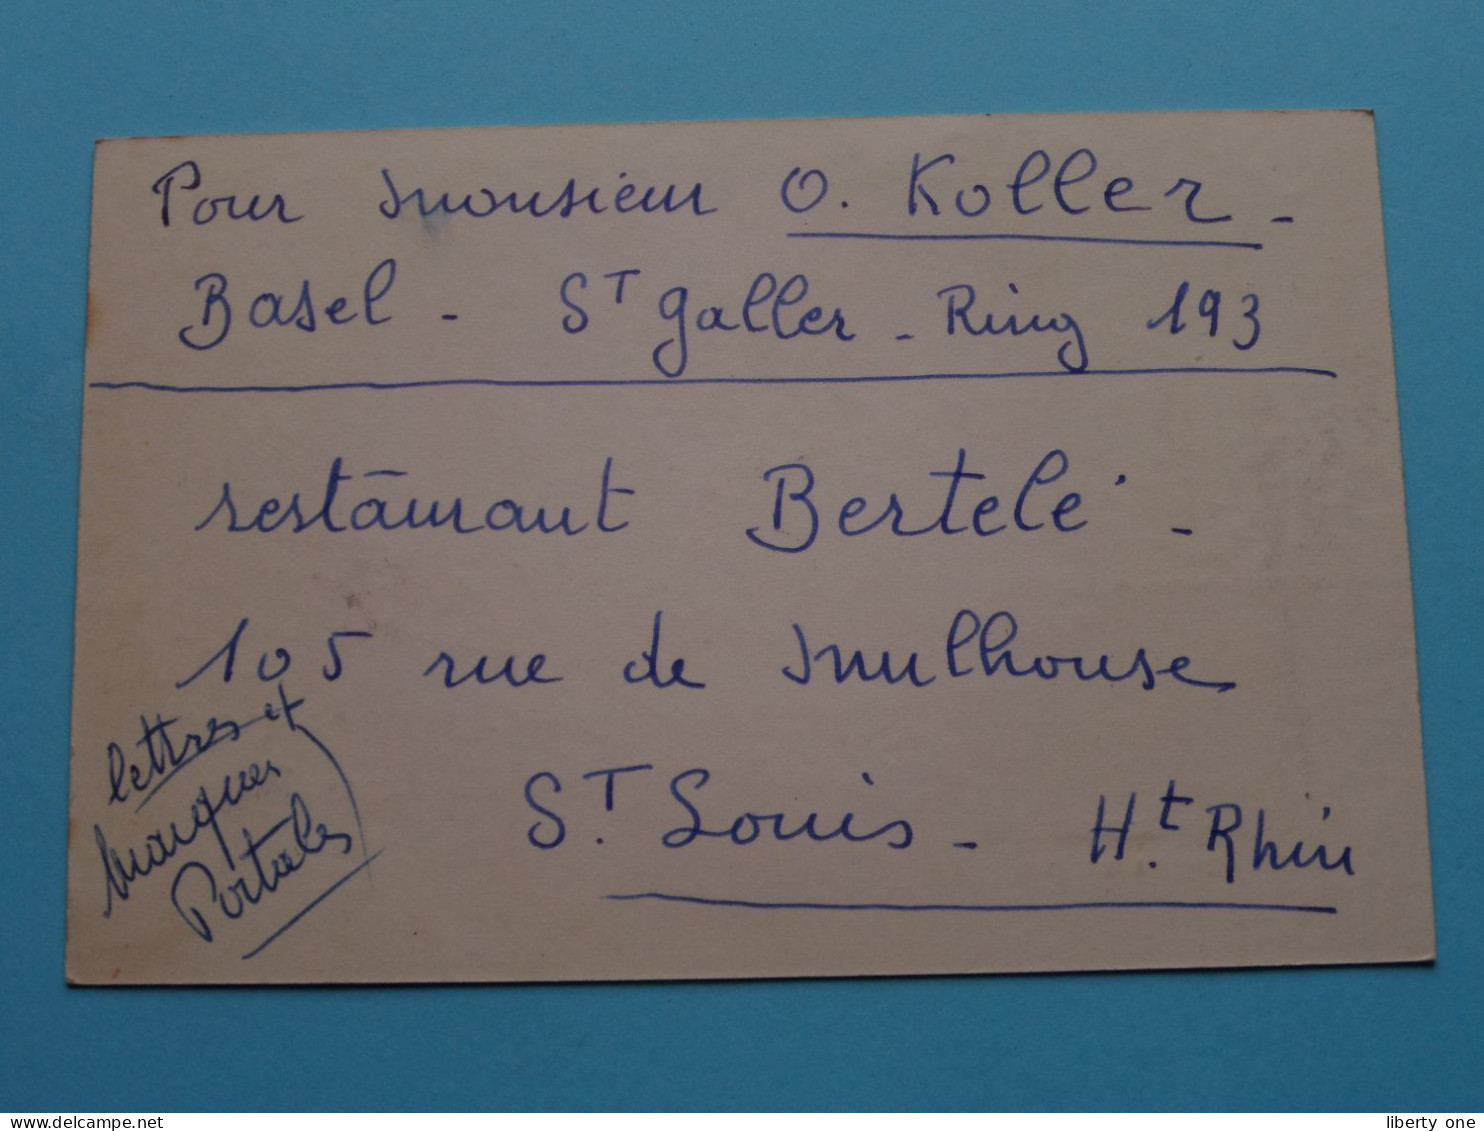 Pour Monsieur O. Koller -
Basel - St Galler - Ring 193
restaurant Bertelé -
105 rue de Mulhouse
St. Louis - Ht. Rhin
lettres et
Marques
Postales
liberty one